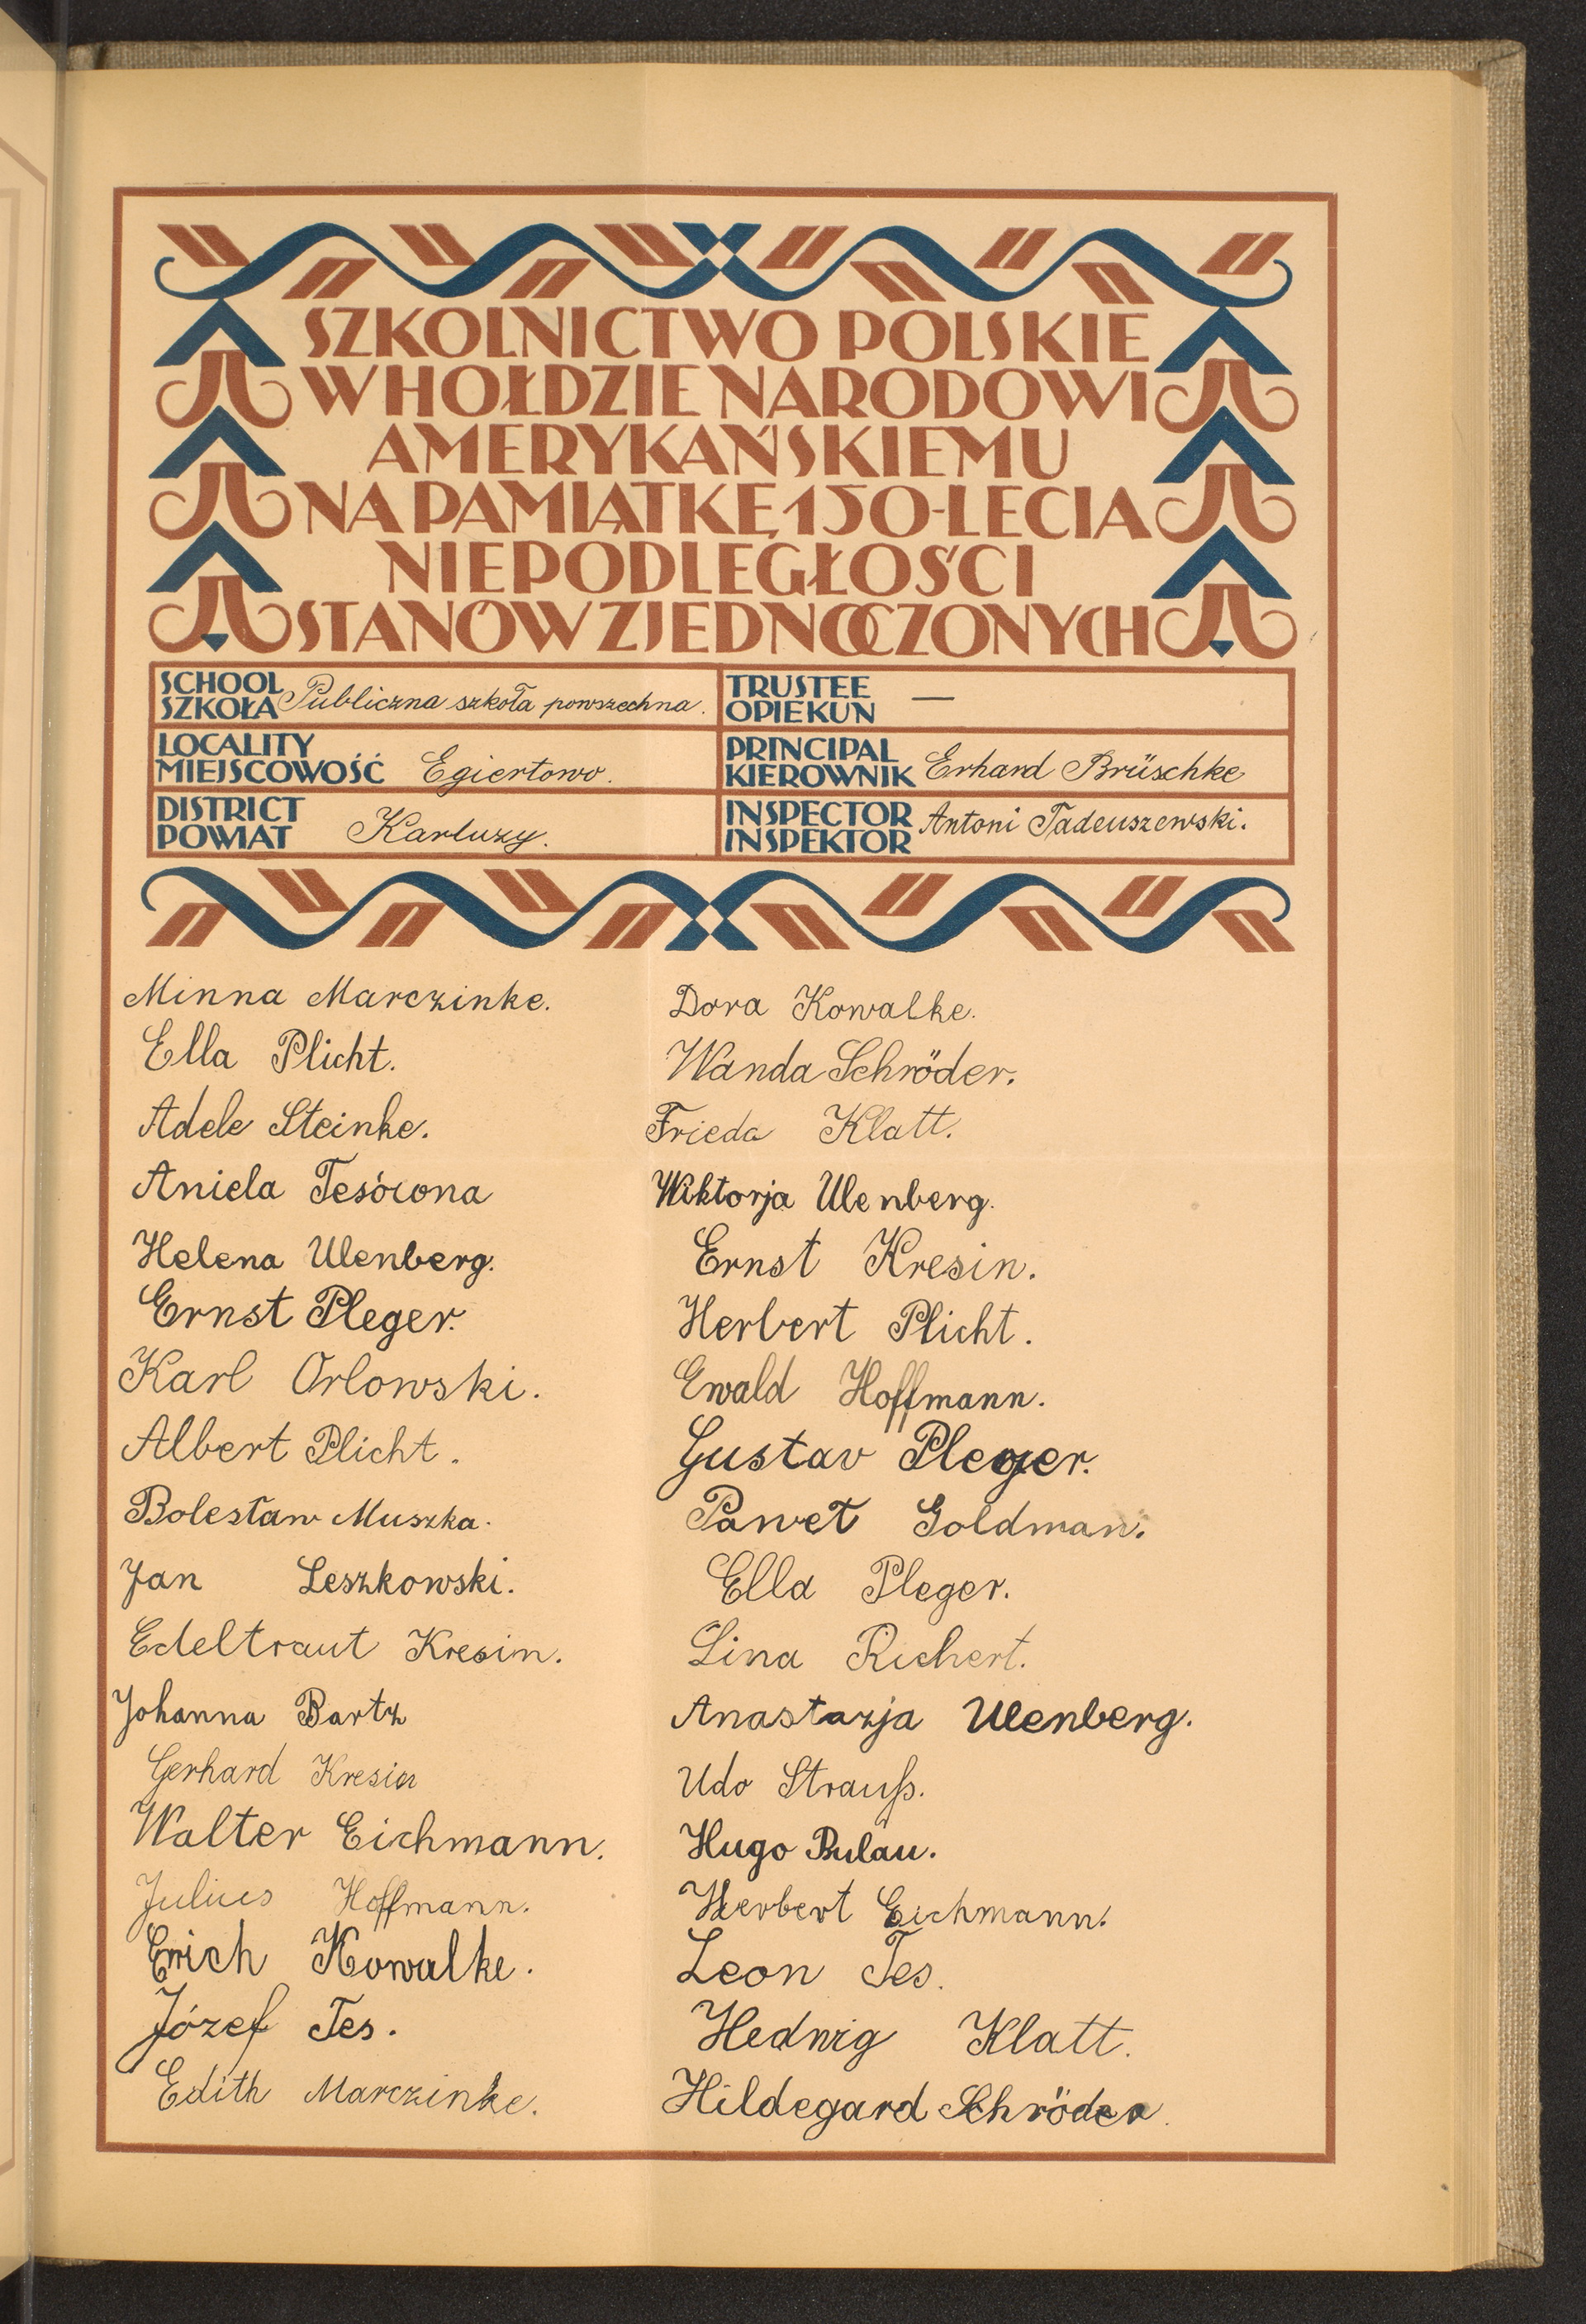 SZKOLNICTWO POLSKIE
W HOŁDZIE NARODOWI
AMERYKAŃSKIEMU
NA PAMIĄTKĘ 150-LECIA
NIEPODLEGŁOŚCI
STANÓW ZJEDNOCZONYCH
SCHOOL
SZKOŁA Publiczna szkoła powszechna.
TRUSTEE
OPIEKUN —
LOCALITY
MIEJSCOWOŚĆ Egiertowo.
PRINCIPAL
KIEROWNIK Erhard Brüschke
DISTRICT
POWIAT Kartuzy.
INSPECTOR
INSPEKTOR Antoni Tadeuszewski.
Minna Marczinke.
Ella Plicht.
Adele Steinke.
Aniela Tesócona
Helena Ulenberg.
Ernst Pleger.
Karl Orlowski.
Albert Plicht.
Bolesław Muszka.
Jan Leszkowski.
Edeltraut Kresin.
Johanna Bartz
Gerhard Kresin
Walter Eichmann.
Julius Hoffmann.
Erich Kowalke.
Józef Tes.
Edith Marczinke.
Dora Kowalke.
Wanda Schröder.
Frieda Klatt.
Wiktorja Ulenberg.
Ernst Kresin.
Herbert Plicht.
Ewald Hoffmann.
Gustav Pleger.
Paweł Goldman.
Ella Pleger.
Lina Richert.
Anastazja Ulenberg.
Udo Strauß.
Hugo Bulau.
Herbert Eichmann.
Leon Tes.
Hedwig Klatt.
Hildegard Schröder.